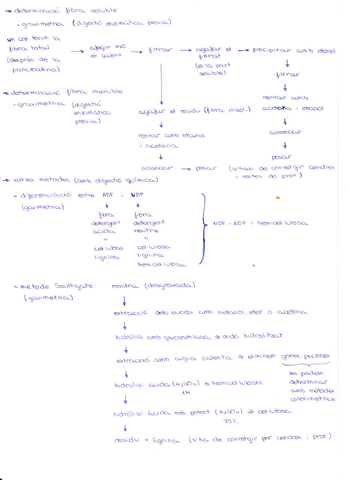 → determinació fibra soluble
- gravimetria (digestió enzimàtica prèvia)
un cop tenim la fibra total (després de la pancreatina) → afegir H2O en calent → filtrar → agafar el filtrat (és la part soluble) → precipitar amb etanol
↓
filtrar
↓
rentar amb acetona i etanol
↓
assecar
↓
pesar
→ determinació fibra insoluble
- gravimetria (digestió enzimàtica prèvia)
↓
agafar el residu (fibra insol.)
↓
rentar amb etanol i acetona
↓
assecar → pesar (s'han de corregir cendres i restes de prot.)
→ altres mètodes (amb digestió química)
- diferenciació entre ADF i NDF
(gravimetria)
fibra detergent àcida
"
cel·lulosa
lignina
fibra detergent neutre
"
cel·lulosa
lignina
hemicel·lulosa
NDF - ADF = hemicel·lulosa
- mètode Southgate
(gravimetria)
mostra (desgreixada)
↓
extracció dels sucres amb metanol, èter o acetona
↓
hidròlisi amb glucoamilasa → midó hidrolitzat
↓
extracció amb aigua calenta → eliminem gomes, pectines
↓
les podem determinar amb mètodes colorimètrics
hidròlisi àcida (H2SO4) → hemicel·luloses
1N
↓
hidròlisi àcida més potent (H2SO4) → cel·lulosa
72%
↓
residu = lignina (s'ha de corregir per cendres i prot.)